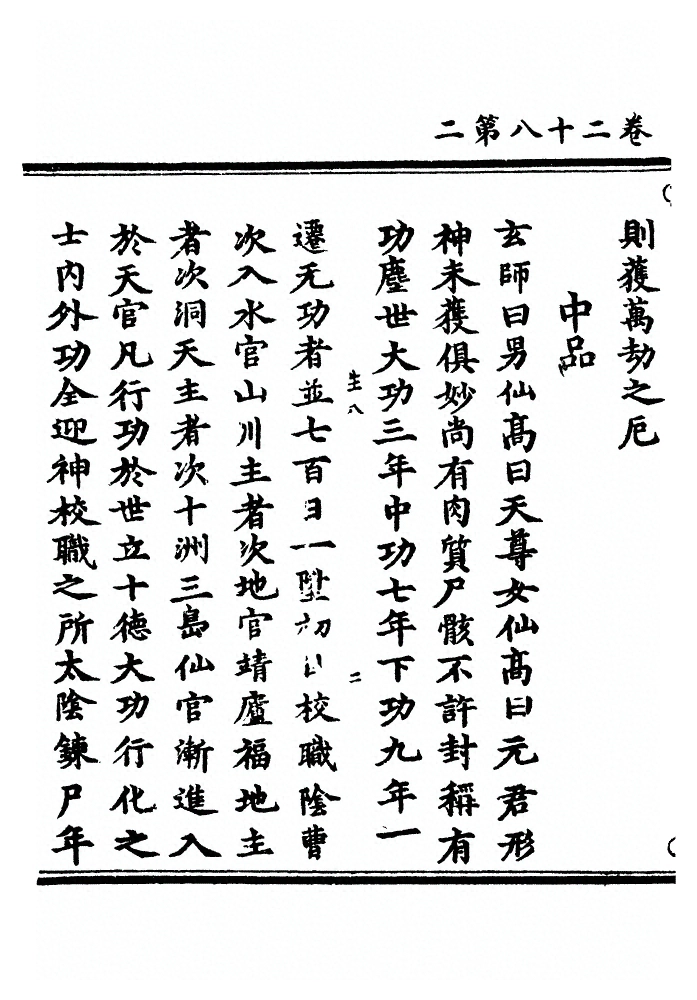 卷二十八第二
則獲萬劫之厄
中品
玄師曰男仙高曰天尊女仙高曰元君形
神未獲俱妙尚有肉質尸骸不許封稱有
功塵世大功三年中功七年下功九年一
生八
二
遷无功者並七百日一陞初校職陰曹
次入水官山川主者次地官靖廬福地主
者次洞天主者次十洲三島仙官漸進入
於天官凡行功於世立十德大功行化之
士內外功全迎神校職之所太陰鍊尸年